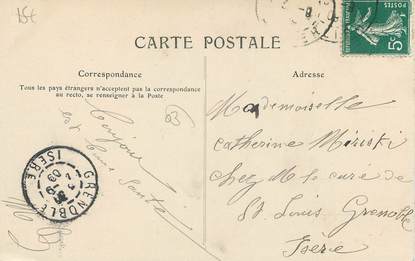 15€
CARTE POSTALE
Correspondance
Tous les pays étrangers n'acceptent pas la correspondance
au recto, se renseigner à la Poste
Bonjour
et bonne Santé
63
Adresse
Mademoiselle
Catherine
chez M le curé de
St Louis Grenoble
Isère
GRENOBLE
ISERE
POSTES
5